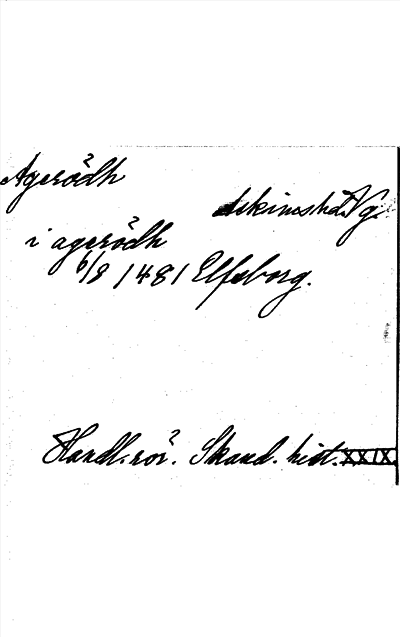 Agerödh
Askims hd. Vg.
i agerödh
6/8 1481 Elfsborg.
Handl. rör. Skand. hist. XXIX.